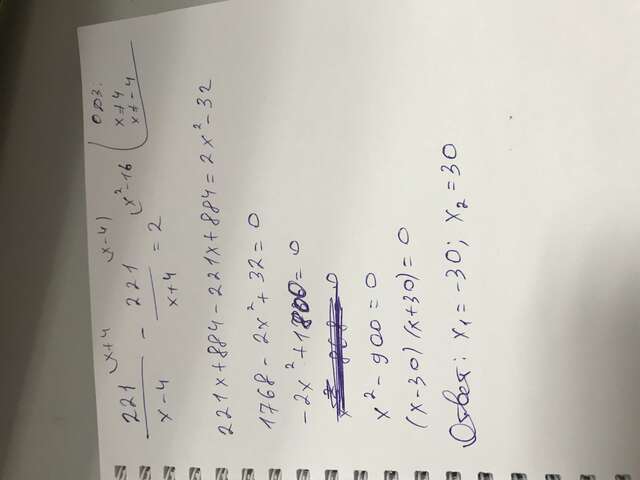 221 ˣ⁺⁴/x-4 - 221 ˣ⁻⁴/x+4 = 2 x²-16 ОДЗ: x≠4 x≠-4
221x+884-221x+884=2x²-32
1768-2x²+32=0
-2x²+1800=0
x²-900=0
(x-30)(x+30)=0
Ответ: x₁=-30; x₂=30